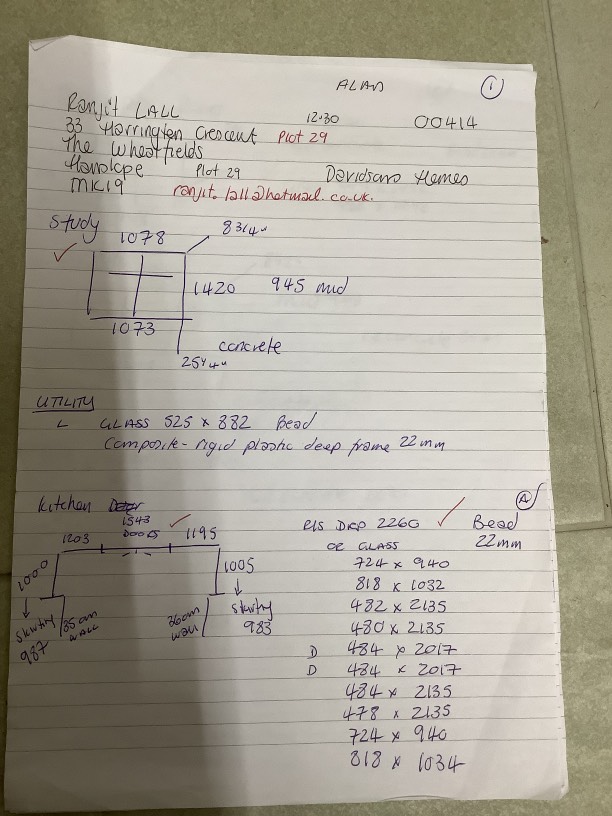 ALAN 1
Ranjit LALL 12.30 00414
33 Harrington Crescent Plot 29
The Wheatfields
Hanslope Plot 29 Davidsons Homes
MK19 ranjit.lall@hotmail.co.uk.
Study 8 3/4"
1078
1420 945 mid
1073
concrete
25 1/4"
UTILITY
L GLASS 525 x 882 Bead
Composite - rigid plastic deep frame 22mm
Kitchen A
1543
1203 DOORS 1195
1000 1005
Skirting 35cm WALL 36cm WALL Skirting
987 983
DRP 2260 Bead
OR GLASS 22mm
724 x 940
818 x 1032
482 x 2135
480 x 2135
D 484 x 2017
D 484 x 2017
484 x 2135
478 x 2135
724 x 940
818 x 1034